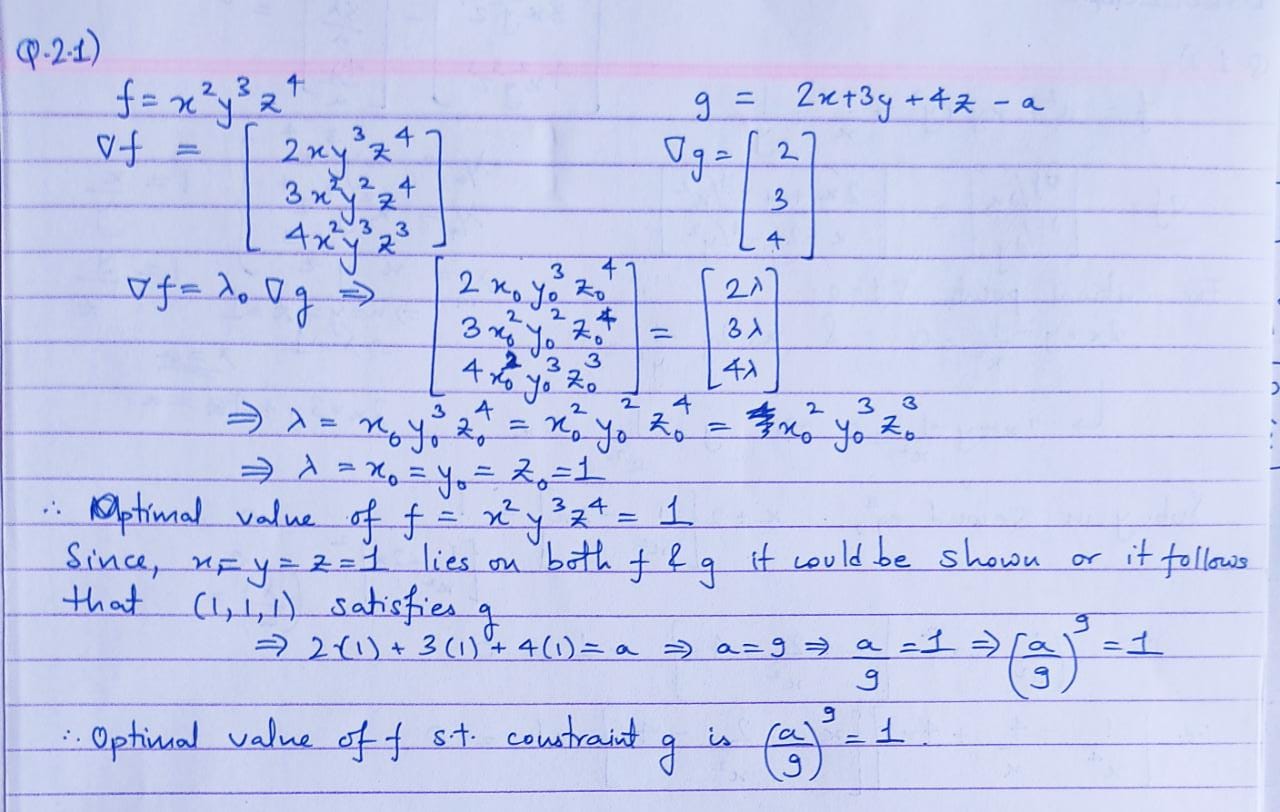 Q.2.1)
f = x²y³z⁴ g = 2x+3y+4z - a
∇f = [ 2xy³z⁴ ∇g = [ 2
3x²y²z⁴ 3
4x²y³z³ ] 4 ]
∇f = λ₀ ∇g ⇒ [ 2x₀y₀³z₀⁴ [ 2λ
3x₀²y₀²z₀⁴ = 3λ
4x₀²y₀³z₀³ ] 4λ ]
⇒ λ = x₀y₀³z₀⁴ = x₀²y₀²z₀⁴ = x₀²y₀³z₀³
⇒ λ = x₀ = y₀ = z₀ = 1
∴ Optimal value of f = x²y³z⁴ = 1
Since, x = y = z = 1 lies on both f & g it could be shown or it follows
that (1,1,1) satisfies g
⇒ 2(1) + 3(1) + 4(1) = a ⇒ a = 9 ⇒ a/9 = 1 ⇒ (a/9)⁹ = 1
∴ Optimal value of f s.t. constraint g is (a/9)⁹ = 1.